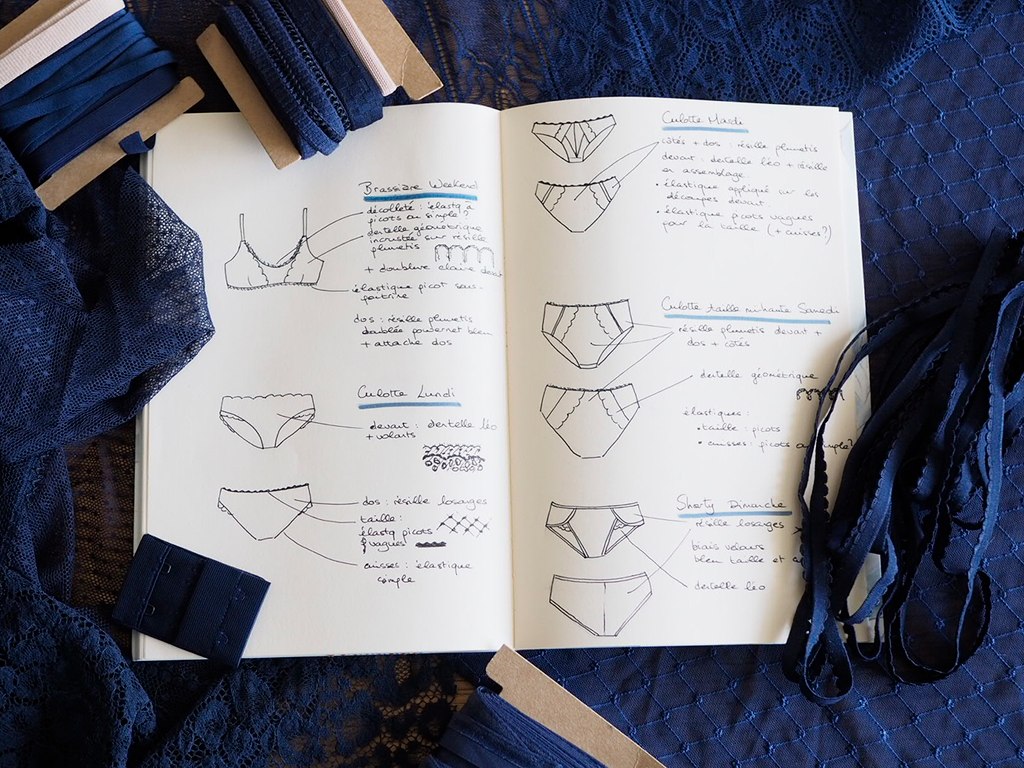 Brassière Weekend
décolleté : élastq à
picots ou simple?
dentelle géométrique
incrustée sur résille
plumetis
+ doublure claire devant
élastique picot sous-
poitrine
dos : résille plumetis
doublée powernet bleu
+ attache dos
Culotte Lundi
devant : dentelle léo
+ volants
dos : résille losanges
taille :
élastq picots
"vagues"
cuisses : élastique
simple
Culotte Mardi
côtés + dos : résille plumetis
devant : dentelle léo + résille
en assemblage.
• élastique appliqué sur les
découpes devant.
• élastique picots vagues
pour la taille (+ cuisses?)
Culotte taille mi-haute Samedi
résille plumetis devant +
dos + côtés
dentelle géométrique
élastiques :
• taille : picots
• cuisses : picots ou simple?
Shorty Dimanche
résille losanges
biais velours
bleu taille et
dentelle léo